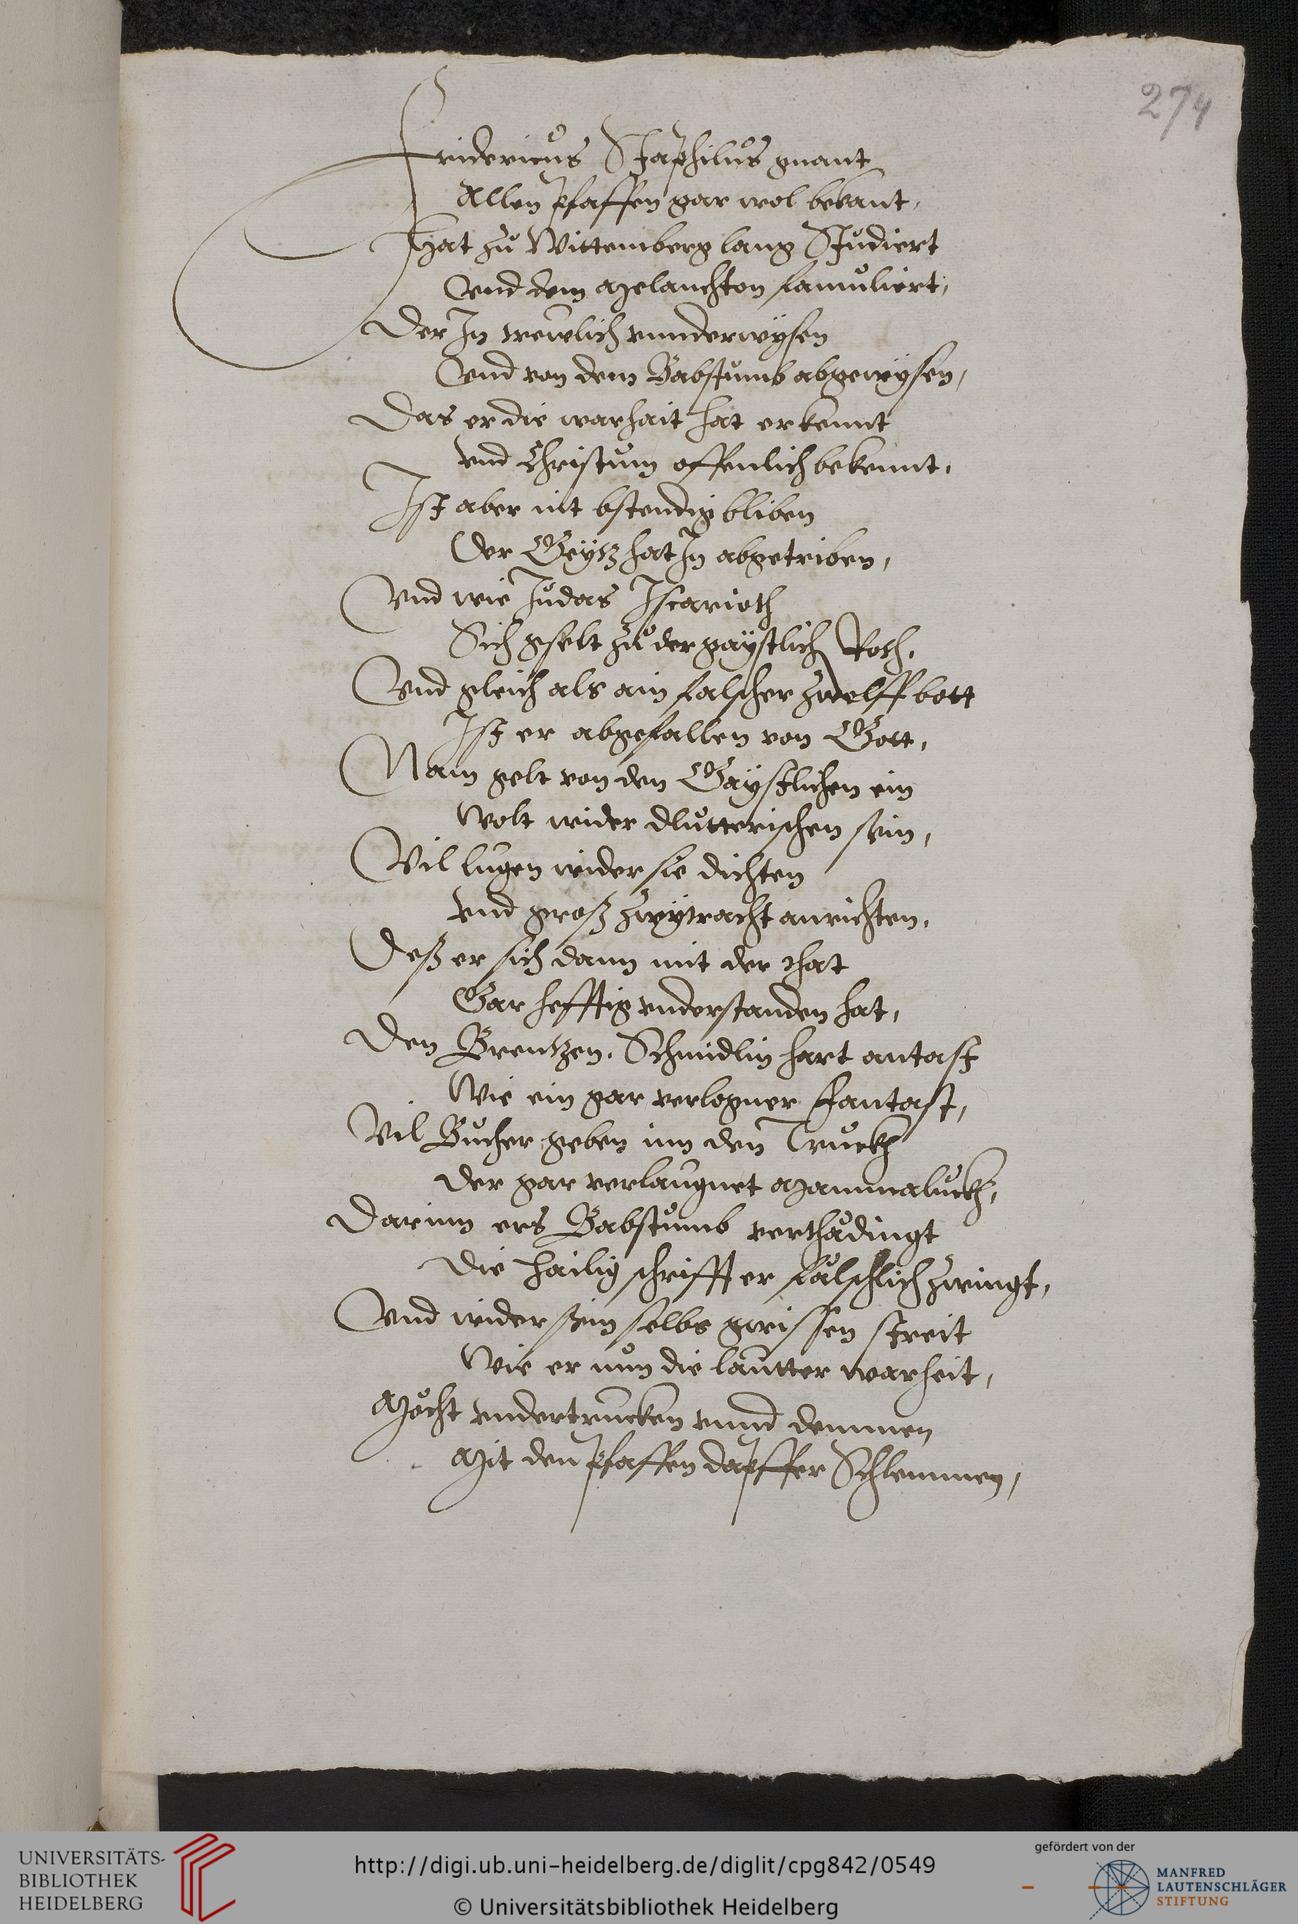 274
Fridericus Staphilus gnant
Allen pfaffen gar wol bekant,
Hat zů Wittemberg lang Studiert
Vnd dem Melanchton famuliert,
Der In trewlich vnnderwysen
Vnd von dem Babstumb abgewysen,
Das er die warhait hat erkennt
vnd Christum offenlich bekennt,
Ist aber nit bstendig bliben
Der Geytz hat In abgetriben,
Vnd wie Judas Iscarioth
Sich gselt zů der gaystlich Roth,
Vnd gleich als ain falscher zwelffbott
Ist er abgefallen von Gott,
Nam gelt von den Gaystlichen ein
Wolt wider dlutterischen sein,
Vil lugen wider sie dichten
vnd groß zwytracht anrichten,
Deß er sich dann mit der that
Gar hefftig vnderstanden hat,
Den Brentzen, Schmidlin hart antast
Wie ein gar verlogner fantast,
Vil Bucher geben inn den Truckh
der gar verlaugnet Mammaluckh,
Darinn ers Babstumb verthådingt
Die hailig schrifft er fålschlich zwingt,
Vnd wider sein selbs gwissen streit
Wie er nun die lautter warheit,
Möcht vndertrucken vnnd demmen
Mit den pfaffen dapffer Schlemmen,
UNIVERSITÄTS-
BIBLIOTHEK
HEIDELBERG
http://digi.ub.uni-heidelberg.de/diglit/cpg842/0549
© Universitätsbibliothek Heidelberg
gefördert von der
MANFRED
LAUTENSCHLÄGER
STIFTUNG